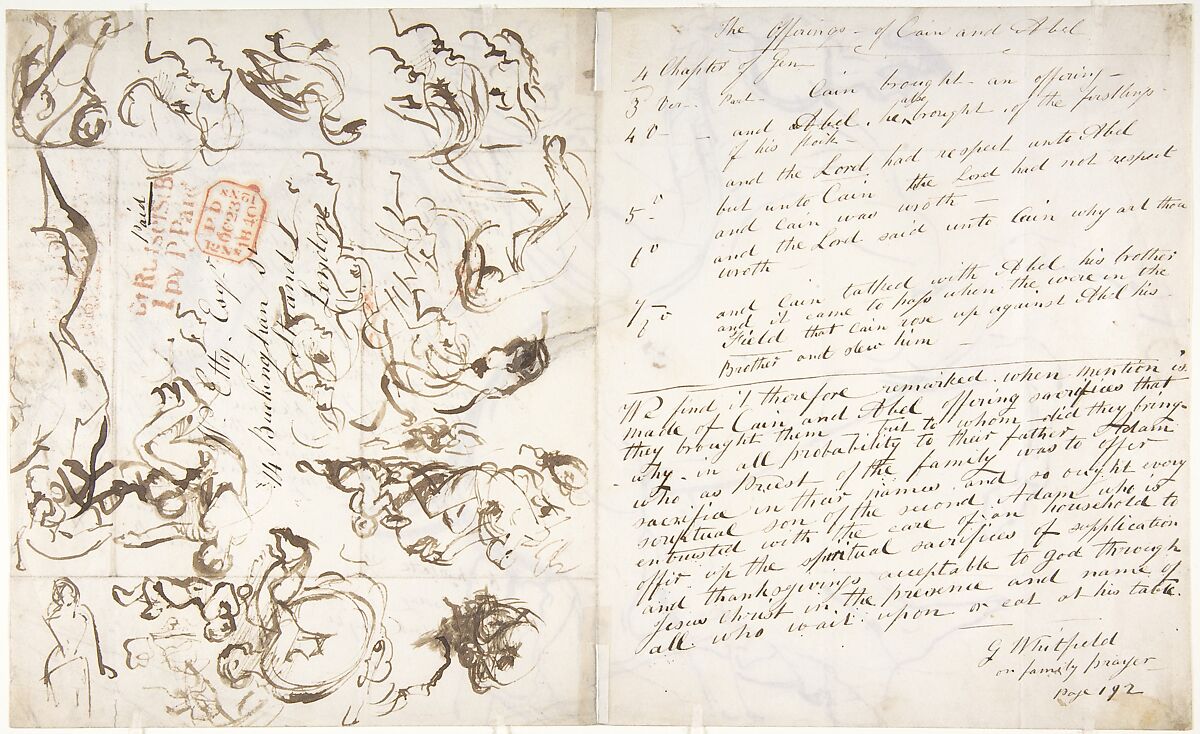 Paid
Gt RussellS.B
1py P.Paid
PD
23
1840
Etty. Esqr
14 Buckingham S
Strand
London
The Offerings - of Cain and Abel
4 Chapter of Gen
3 Ver - Part - Cain brought - an offering -
4 D - - and Abel. he also brought of the firstlings -
of his flock -
and the Lord had respect unto Abel
but unto Cain the Lord had not respect
5 D and Cain was wroth -
6 D and the Lord said unto Cain why art thou
wroth -
and Cain talked with Abel his brother
and it came to pass when the were in the
Field that Cain rose up against Abel his
Brother and slew him -
We find it therefore remarked when mention is
made of Cain and Abel offering sacrifices that
they brought them but to whom did they bring -
why - in all probability to their father Adam
who as Priest of the family was to offer
sacrifice in their names and so ought every
spiritual son of the second Adam who is
entrusted with the care of an household to
offer up the spiritual sacrifices of supplication
and thanksgivings acceptable to God through
Jesus Christ in the presence and name of
all who wait upon or eat at his table.
G Whitfield
on family prayer
Page 192